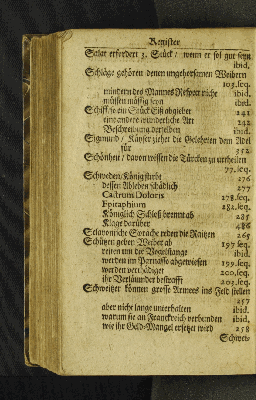 Register
Salat erfordert 3. Stück / wenn er sol gut seyn
ibid.
Schläge gehören denen ungehorsamen Weibern
103. seq.
mindern des Mannes Respect nicht ibid.
müssen mässig seyn ibid.
Schiff, so ein Stück Eiß abgiebet 241
ein anders wunderliche Art 242
Beschreibung derselben ibid.
Sigmund / Käyser ziehet die Gelehrten dem Adel
für 352
Schönheit / davon wissen die Türcken zu urtheilen
77. seq.
Schweden / König stirbt 276
dessen Ableben schädlich 277
Castrum Doloris 278. seq.
Epitaphium 282. seq.
Königlich Schloß brennt ab 285
Klage darüber 486
Sclavonische Sprache reden die Raitzen 265
Schützen geben Weiber ab 197 seq.
reiten um der Vogelstange ibid.
werden im Parnasso abgewiesen 199. seq.
werden vertheidiget 200. seq.
ihr Verläumder bestrafft 203. seq.
Schweitzer können grosse Armees ins Feld stellen
257
aber nicht lange unterhalten ibid.
warum sie an Franckreich verbunden ibid.
wie ihr Geld-Mangel ersetzet wird 258
Schwei-